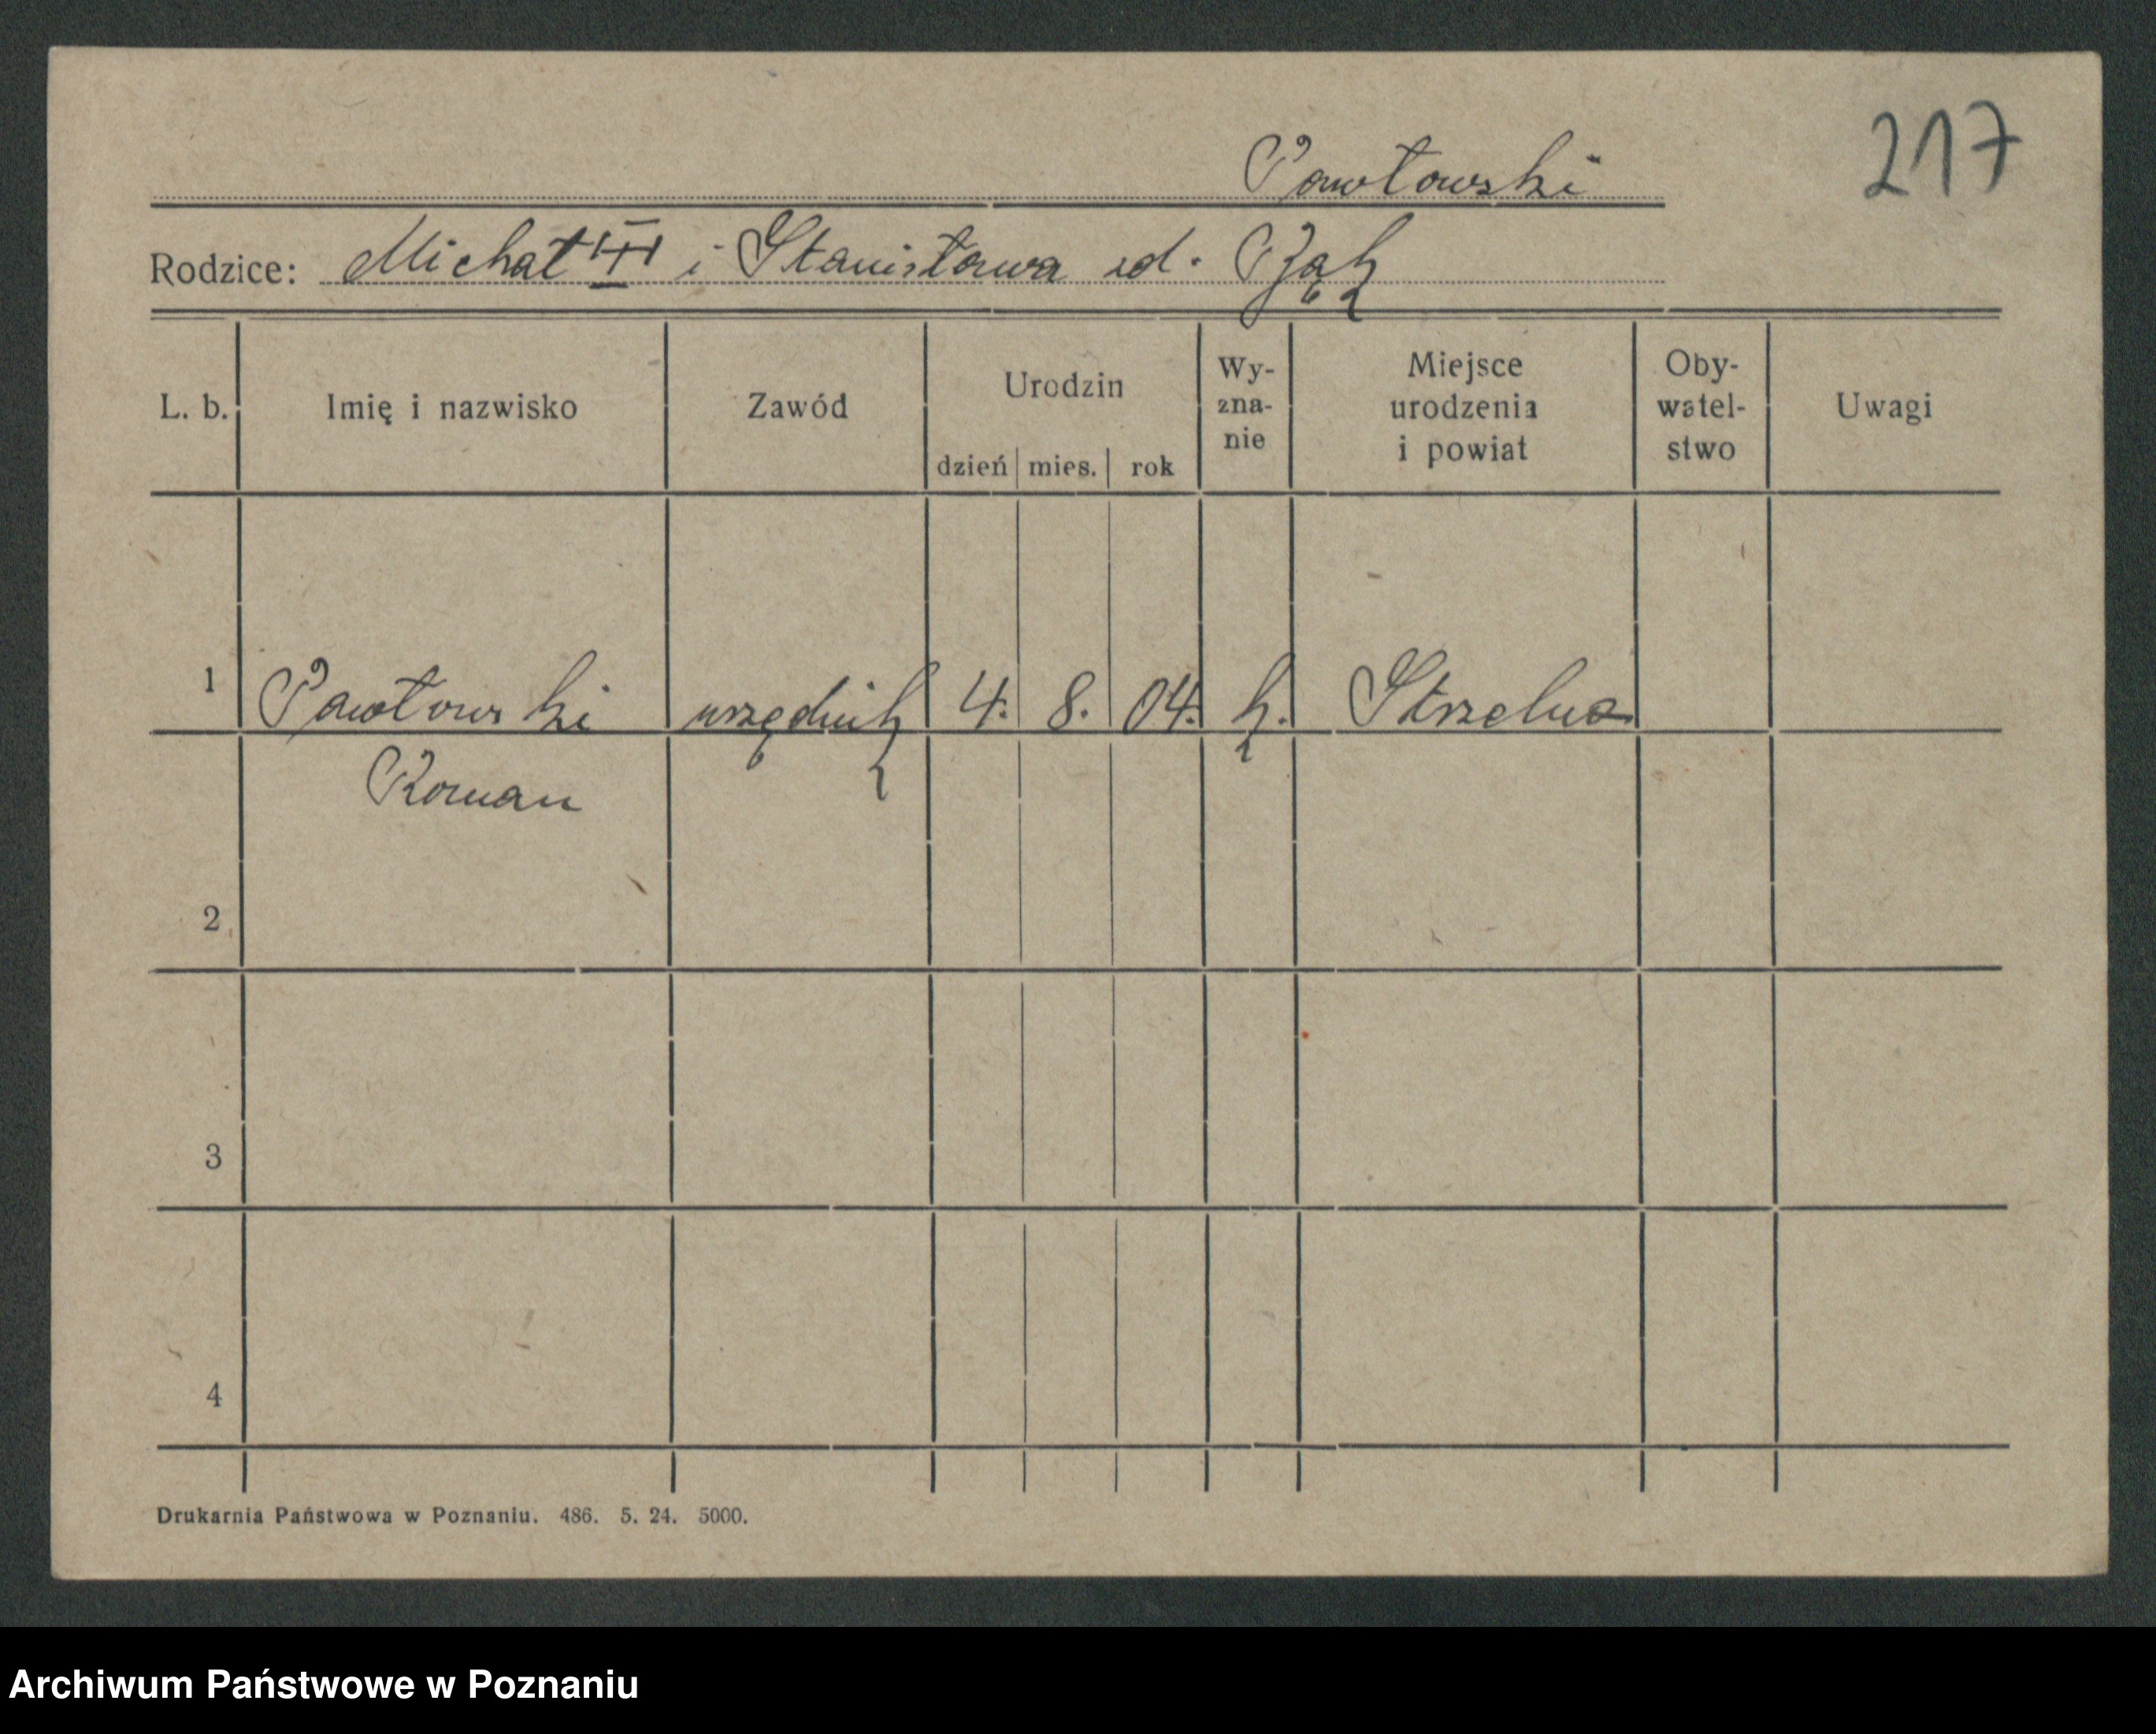 217
Pawłowski
Rodzice: Michał III i Stanisława zd. Bąk
L. b. Imię i nazwisko Zawód Urodzin dzień mies. rok Wy-zna-nie Miejsce urodzenia i powiat Oby-watel-stwo Uwagi
1 Pawłowski urzędnik 4. 8. 04. k.
Roman
2
3
4
Drukarnia Państwowa w Poznaniu. 486. 5. 24. 5000.
Archiwum Państwowe w Poznaniu